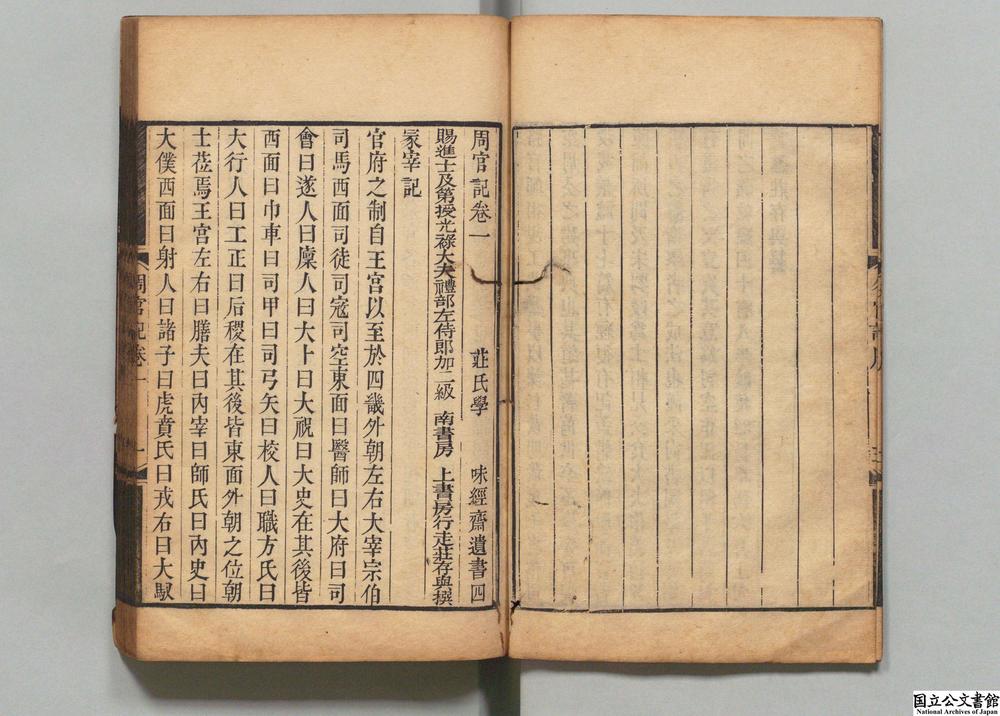 周官記卷一 莊氏學 味經齋遺書四
賜進士及第授光祿大夫禮部左侍郎加二級 南書房 上書房行走莊存與撰
冢宰記
官府之制自王宮以至於四畿外朝左右大宰宗伯
司馬西面司徒司寇司空東面曰醫師曰大府曰司
會曰遂人曰廩人曰大卜曰大祝曰大史在其後皆
西面曰巾車曰司甲曰司弓矢曰校人曰職方氏曰
大行人曰工正曰后稷在其後皆東面外朝之位朝
士莅焉王宮左右曰膳夫曰內宰曰師氏曰內史曰
大僕西面曰射人曰諸子曰虎賁氏曰戎右曰大馭
周官記卷一 一
国立公文書館
National Archives of Japan